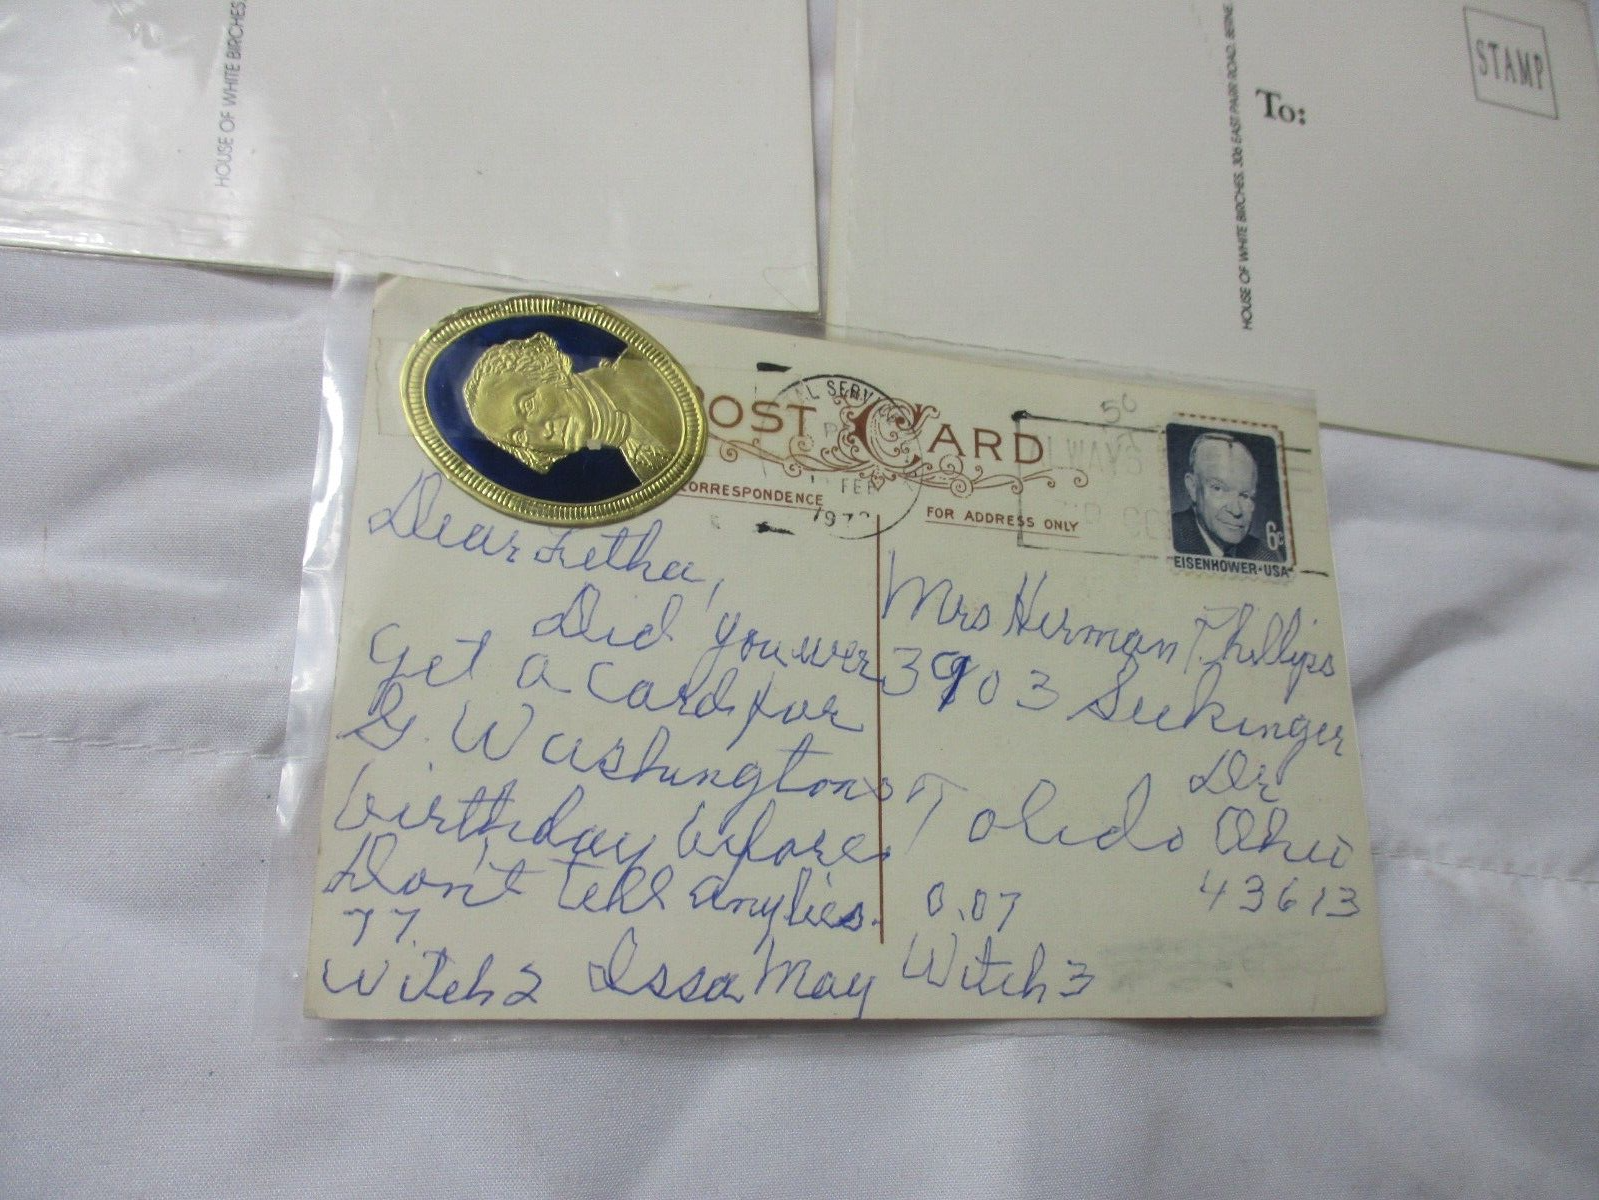 HOUSE OF WHITE BIRCHES,
HOUSE OF WHITE BIRCHES, 306 EAST PARR ROAD, BERNE
To:
STAMP
POST CARD
CORRESPONDENCE
FOR ADDRESS ONLY
AL SERV
FEB
197
50
ALWAYS
6c
EISENHOWER·USA
Dear Letha,
Did you ever
get a card for
G. Washingtons
birthday before.
Don't tell any lies.
77.
Witch 2 Issa May
Mrs Herman Phillips
3903 Seekinger
Dr
Toledo Ohio
43613
0.07
Witch 3